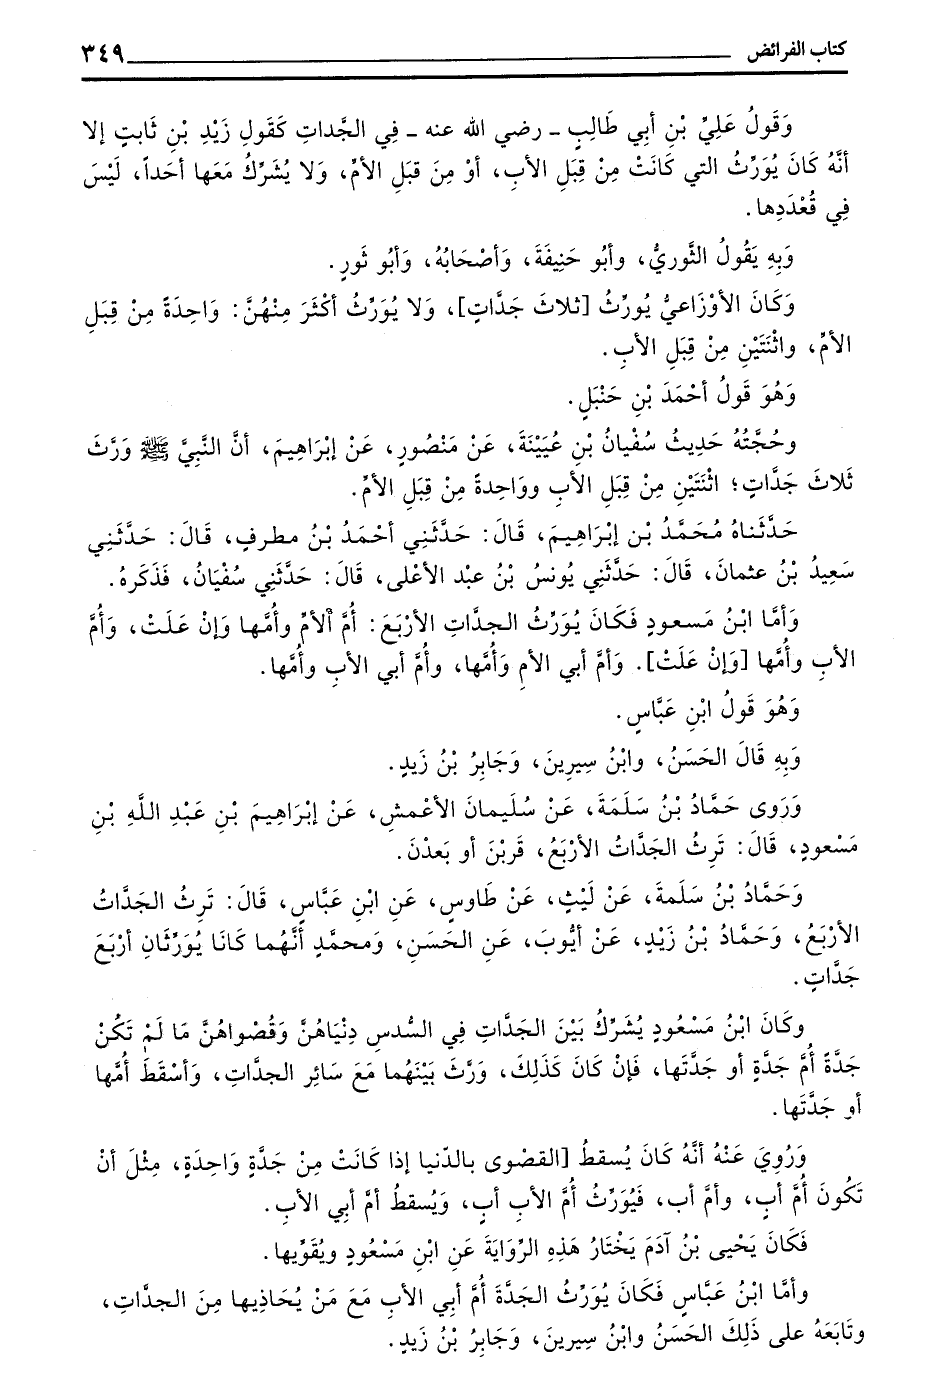 كتاب الفرائض ٣٤٩
وَقَولُ عَلِيِّ بْنِ أبِي طَالِبٍ - رضي الله عنه - فِي الجَّداتِ كَقَولِ زَيْدِ بْنِ ثَابتٍ إلا
أنَّهُ كَانَ يُوَرِّثُ التي كَانَتْ مِنْ قِبَلِ الأبِ، أوْ مِنَ قبَلِ الأمِّ، وَلا يُشَرِّكُ مَعَها أحَداً، لَيْسَ
فِي قُعْدَدِها.
وَبِهِ يَقُولُ الثَّوريُّ، وأبُو حَنِيفَةَ، وَأصْحَابُهُ، وَأبُو ثَورٍ.
وَكَانَ الأوْزَاعيُّ يُورِّثُ [ثلاثَ جَدَّاتٍ]، وَلا يُوَرِّثُ أكْثَرَ مِنْهُنَّ: وَاحِدَةً مِنْ قِبَلِ
الأمِّ، واثْنَتَيْنِ مِنْ قِبَلِ الأبِ.
وَهُوَ قَولُ أحْمَدَ بْنِ حَنْبَلٍ.
وحُجَّتُهُ حَدِيثُ سُفْيانُ بْنِ عُيَيْنَةَ، عَنْ مَنْصُورٍ، عَنْ إبْرَاهِيمَ، أنَّ النَّبِيَّ ﷺ وَرَّثَ
ثَلاثَ جَدَّاتٍ؛ اثْنَتَيْنِ مِنْ قِبَلِ الأبِ ووَاحِدةً مِنْ قِبَلِ الأمِّ.
حَدَّثَناهُ مُحَمَّدُ بْن إبْرَاهِيمَ، قَالَ: حَدَّثَنِي أحْمَدُ بْنُ مطرفٍ، قَالَ: حَدَّثَنِي
سَعِيدُ بْنُ عثمانَ، قَالَ: حَدَّثَنِي يُونسُ بْنُ عبْد الأعْلى، قَالَ: حَدَّثَنِي سُفْيَانُ، فَذَكرهُ.
وَأمَّا ابْنُ مَسعودٍ فَكَانَ يُوَرِّثُ الجدَّاتِ الأرْبَعَ: أُم َّ الأمِّ وأُمَّها وَإنْ عَلَتْ، وَأُمَّ
الأبِ وأُمَّها [وَإنْ عَلَتْ]. وَأمَّ أبي الأمِ وَأُمَّها، وأُمَّ أبي الأبِ وأُمَّها.
وَهُوَ قَولُ ابْنِ عَبَّاسٍ.
وَبِهِ قَالَ الحَسَنُ، وابْنُ سِيرِينَ، وَجَابِرُ بْنُ زَيدٍ.
وَرَوى حَمَّادُ بْنُ سَلَمَةَ، عَنْ سُلَيمانَ الأعْمشِ، عَنْ إبْرَاهِيمَ بْنِ عَبْدِ اللَّهِ بْنِ
مَسْعودٍ، قَالَ: تَرِثُ الجَدَّاتُ الأرْبَعُ، قَربْنَ أو بَعدْنَ.
وَحَمَّادُ بْنُ سَلَمةَ، عَنْ لَيْثٍ، عَنْ طَاوسٍ، عَنِ ابْنِ عَبَّاسٍ، قَالَ: تَرِثُ الجَدَّاتُ
الأرْبَعُ، وَحَمَّادُ بْنُ زَيْدٍ، عَنْ أيُّوبَ، عَنِ الحَسَنِ، وَمحمدٍ أنَّهُما كَانَا يُوَرِّثَانِ أرْبَعَ
جَدَّاتٍ.
وكَانَ ابْنُ مَسْعُودٍ يُشَرِّكُ بَيْنَ الجَدَّاتِ فِي السُّدسِ دِنْيَاهُنَّ وَقُصْواهُنَّ مَا لَمْ تَكُنْ
جَدَّةً أُمَّ جَدَّةٍ أو جَدَّتَها، فَإنْ كَانَ كَذَلِكَ، وَرَّثَ بَيْنَهُما مَعَ سَائِرِ الجدَّاتِ، وَأسْقَطَ أُمَّها
أو جَدَّتَها.
وَرُوِيَ عَنْهُ أنَّهُ كَانَ يُسقطُ [القصْوى بالدّنيا إذا كَانَتْ مِنْ جَدَّةٍ وَاحِدَةٍ، مِثْلَ أنْ
تَكُونَ أُمَّ أبٍ، وأمَّ أب، فَيُوَرِّثُ أُمَّ الأبِ أبٍ، وَيُسقطُ أمَّ أبِي الأبِ.
فَكَانَ يَحْيى بْنُ آدَمَ يَخْتَارُ هَذِهِ الرِّوَايَةَ عَنِ ابْنِ مَسْعُودٍ ويُقَوِّيها.
وأمَّا ابْنُ عَبَّاسٍ فَكَانَ يُوَرِّثُ الجَدَّةَ أُمَّ أبِي الأبِ مَعَ مَنْ يُحَاذِيها مِنَ الجدَّاتِ،
وتَابَعَهُ على ذَلِكَ الحَسَنُ وابْنُ سِيرينَ، وَجَابِرُ بْنُ زَيدٍ.